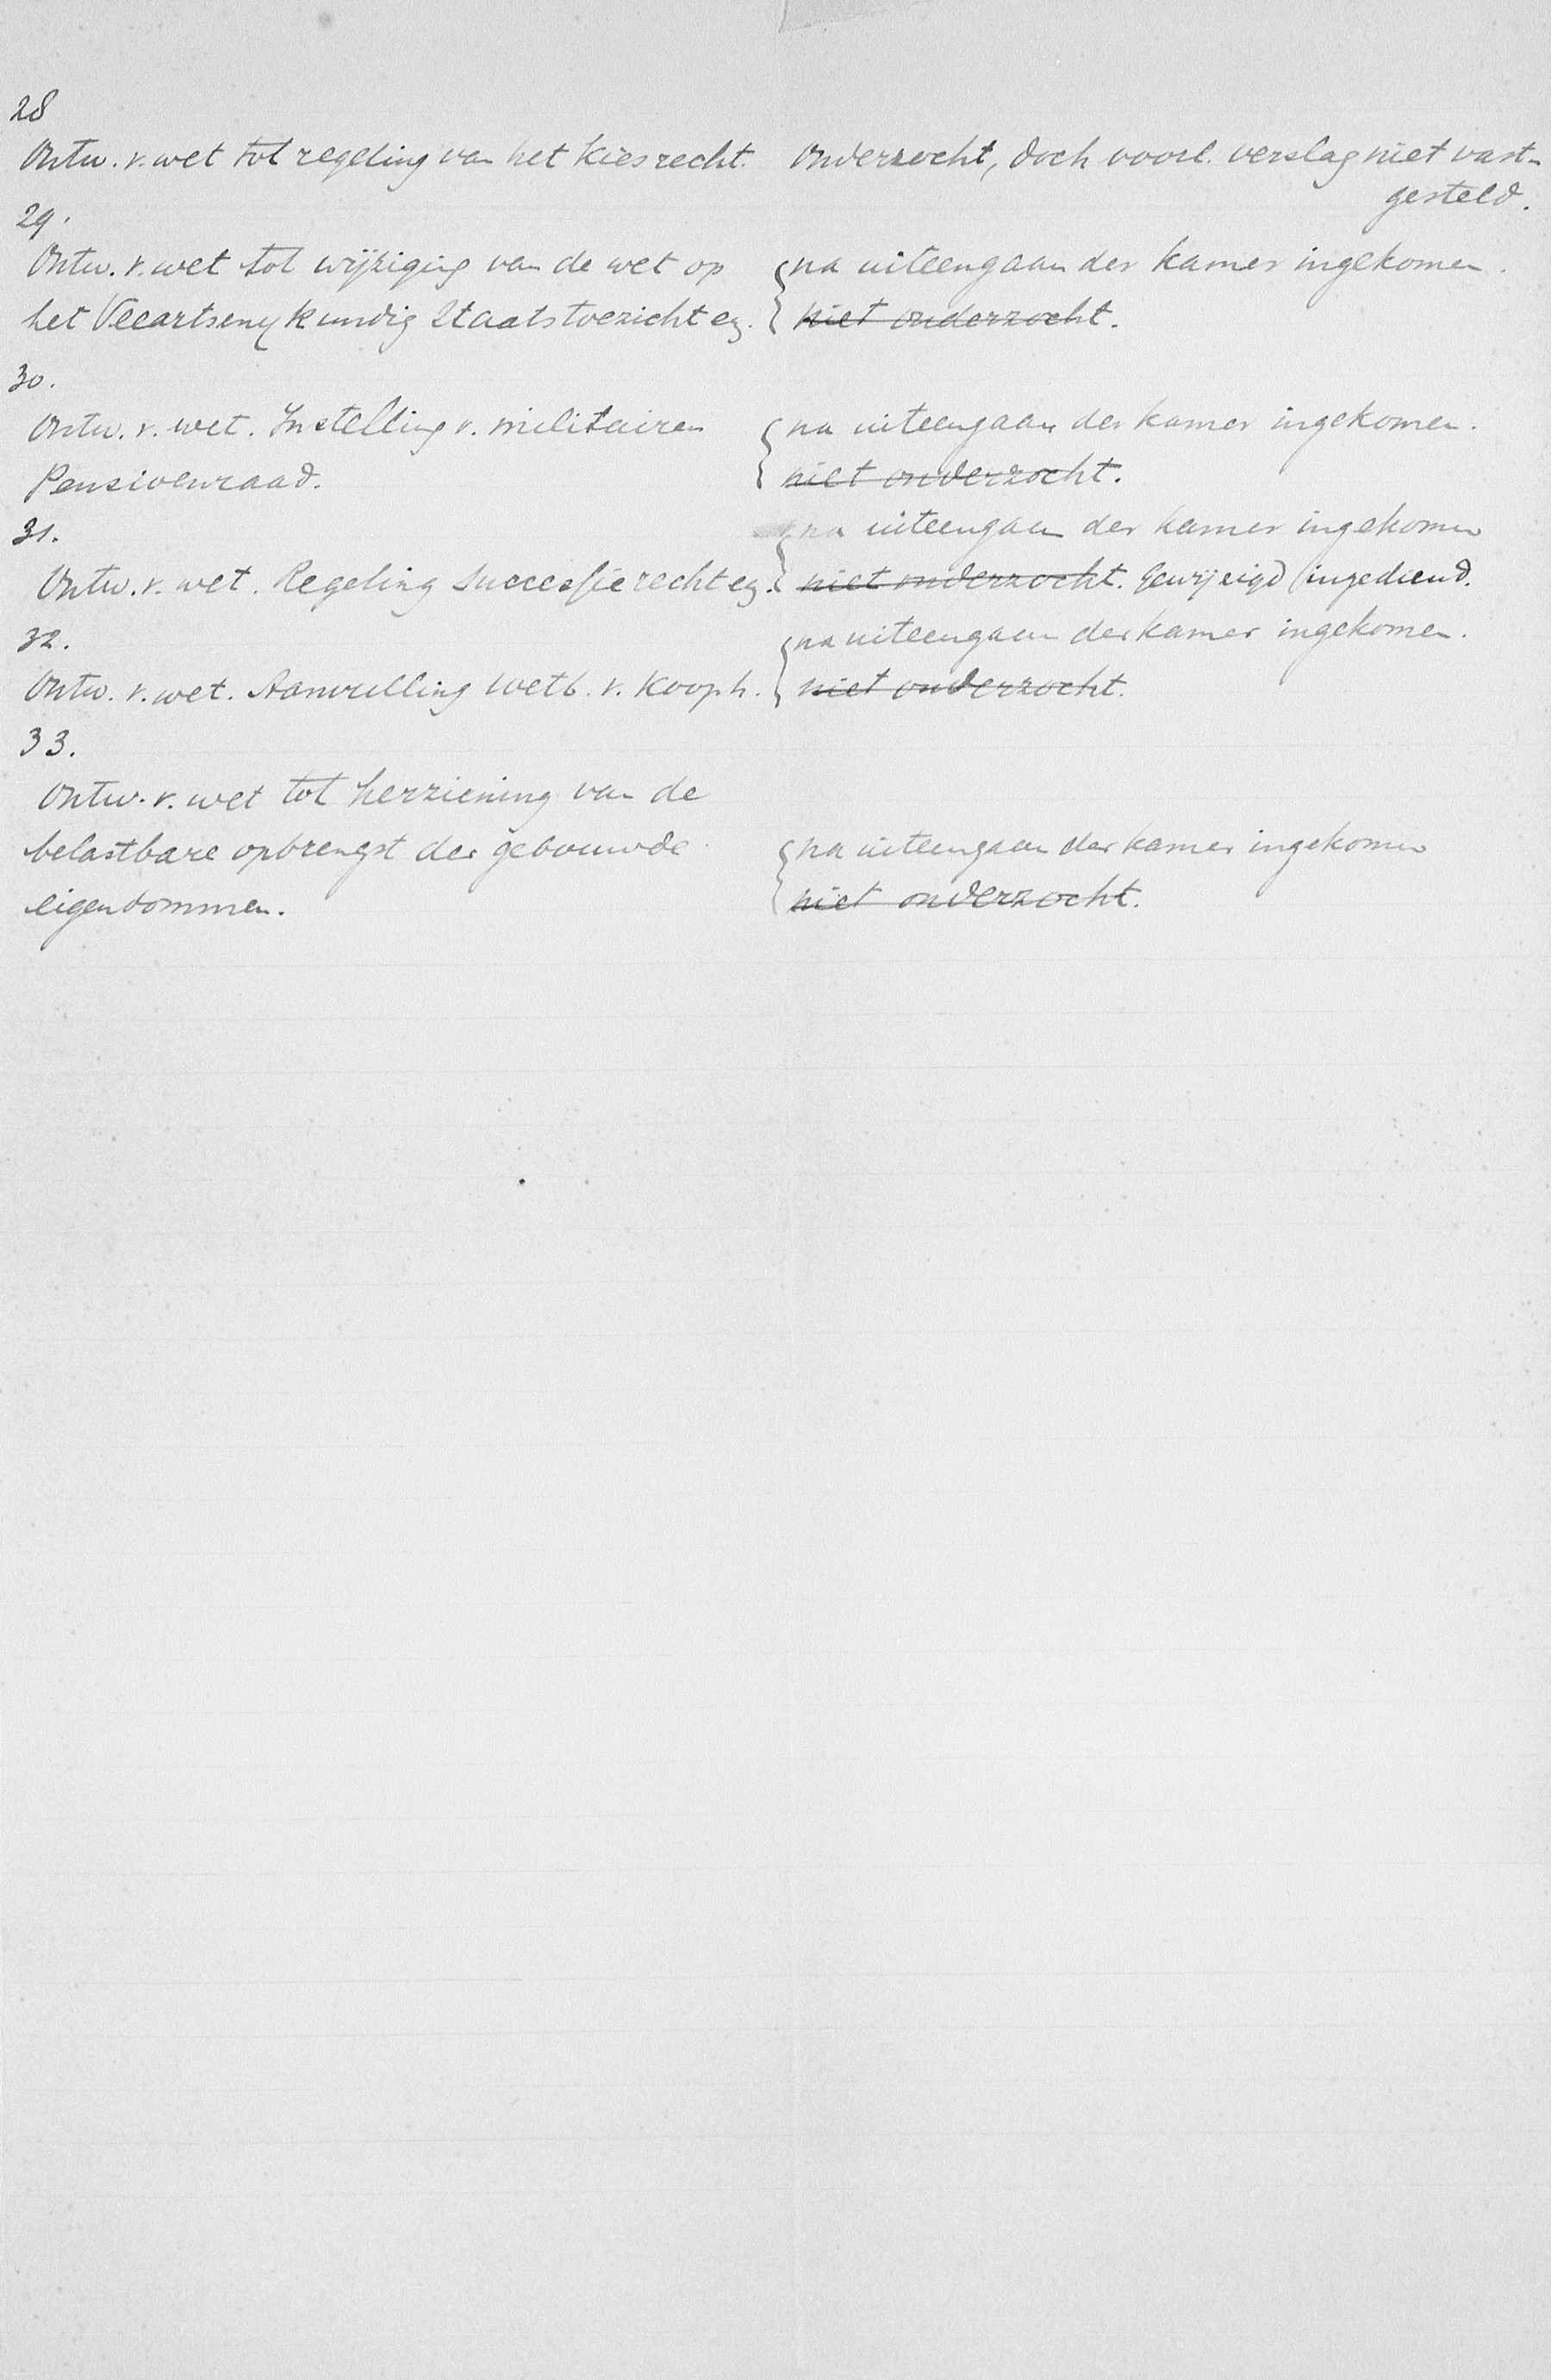 28
Ontw. v. wet tot regeling van het Kiesrecht. Onderzocht, doch voorl. verslag niet vast-
gesteld.
29.
Ontw. v. wet tot wijziging van de wet op na uiteengaan der kamer ingekomen.
het Veeartsenykundig Staatstoezicht enz. niet onderzocht.
30.
Ontw. v. wet. Instelling v. militairen na uiteengaan der kamer ingekomen.
Pensioenraad. niet onderzocht.
31. na uiteengaan der kamer ingekomen
Ontw. v. wet. Regeling Successierecht enz. niet onderzocht. Gewijzigd ingediend.
32. na uiteengaan der kamer ingekomen.
Ontw. v. wet. Aanvulling wetb. v. Kooph. niet onderzocht.
33.
Ontw. v. wet tot herziening van de
belastbare opbrengst der gebouwde na uiteengaan der kamer ingekomen
eigendommen. niet onderzocht.